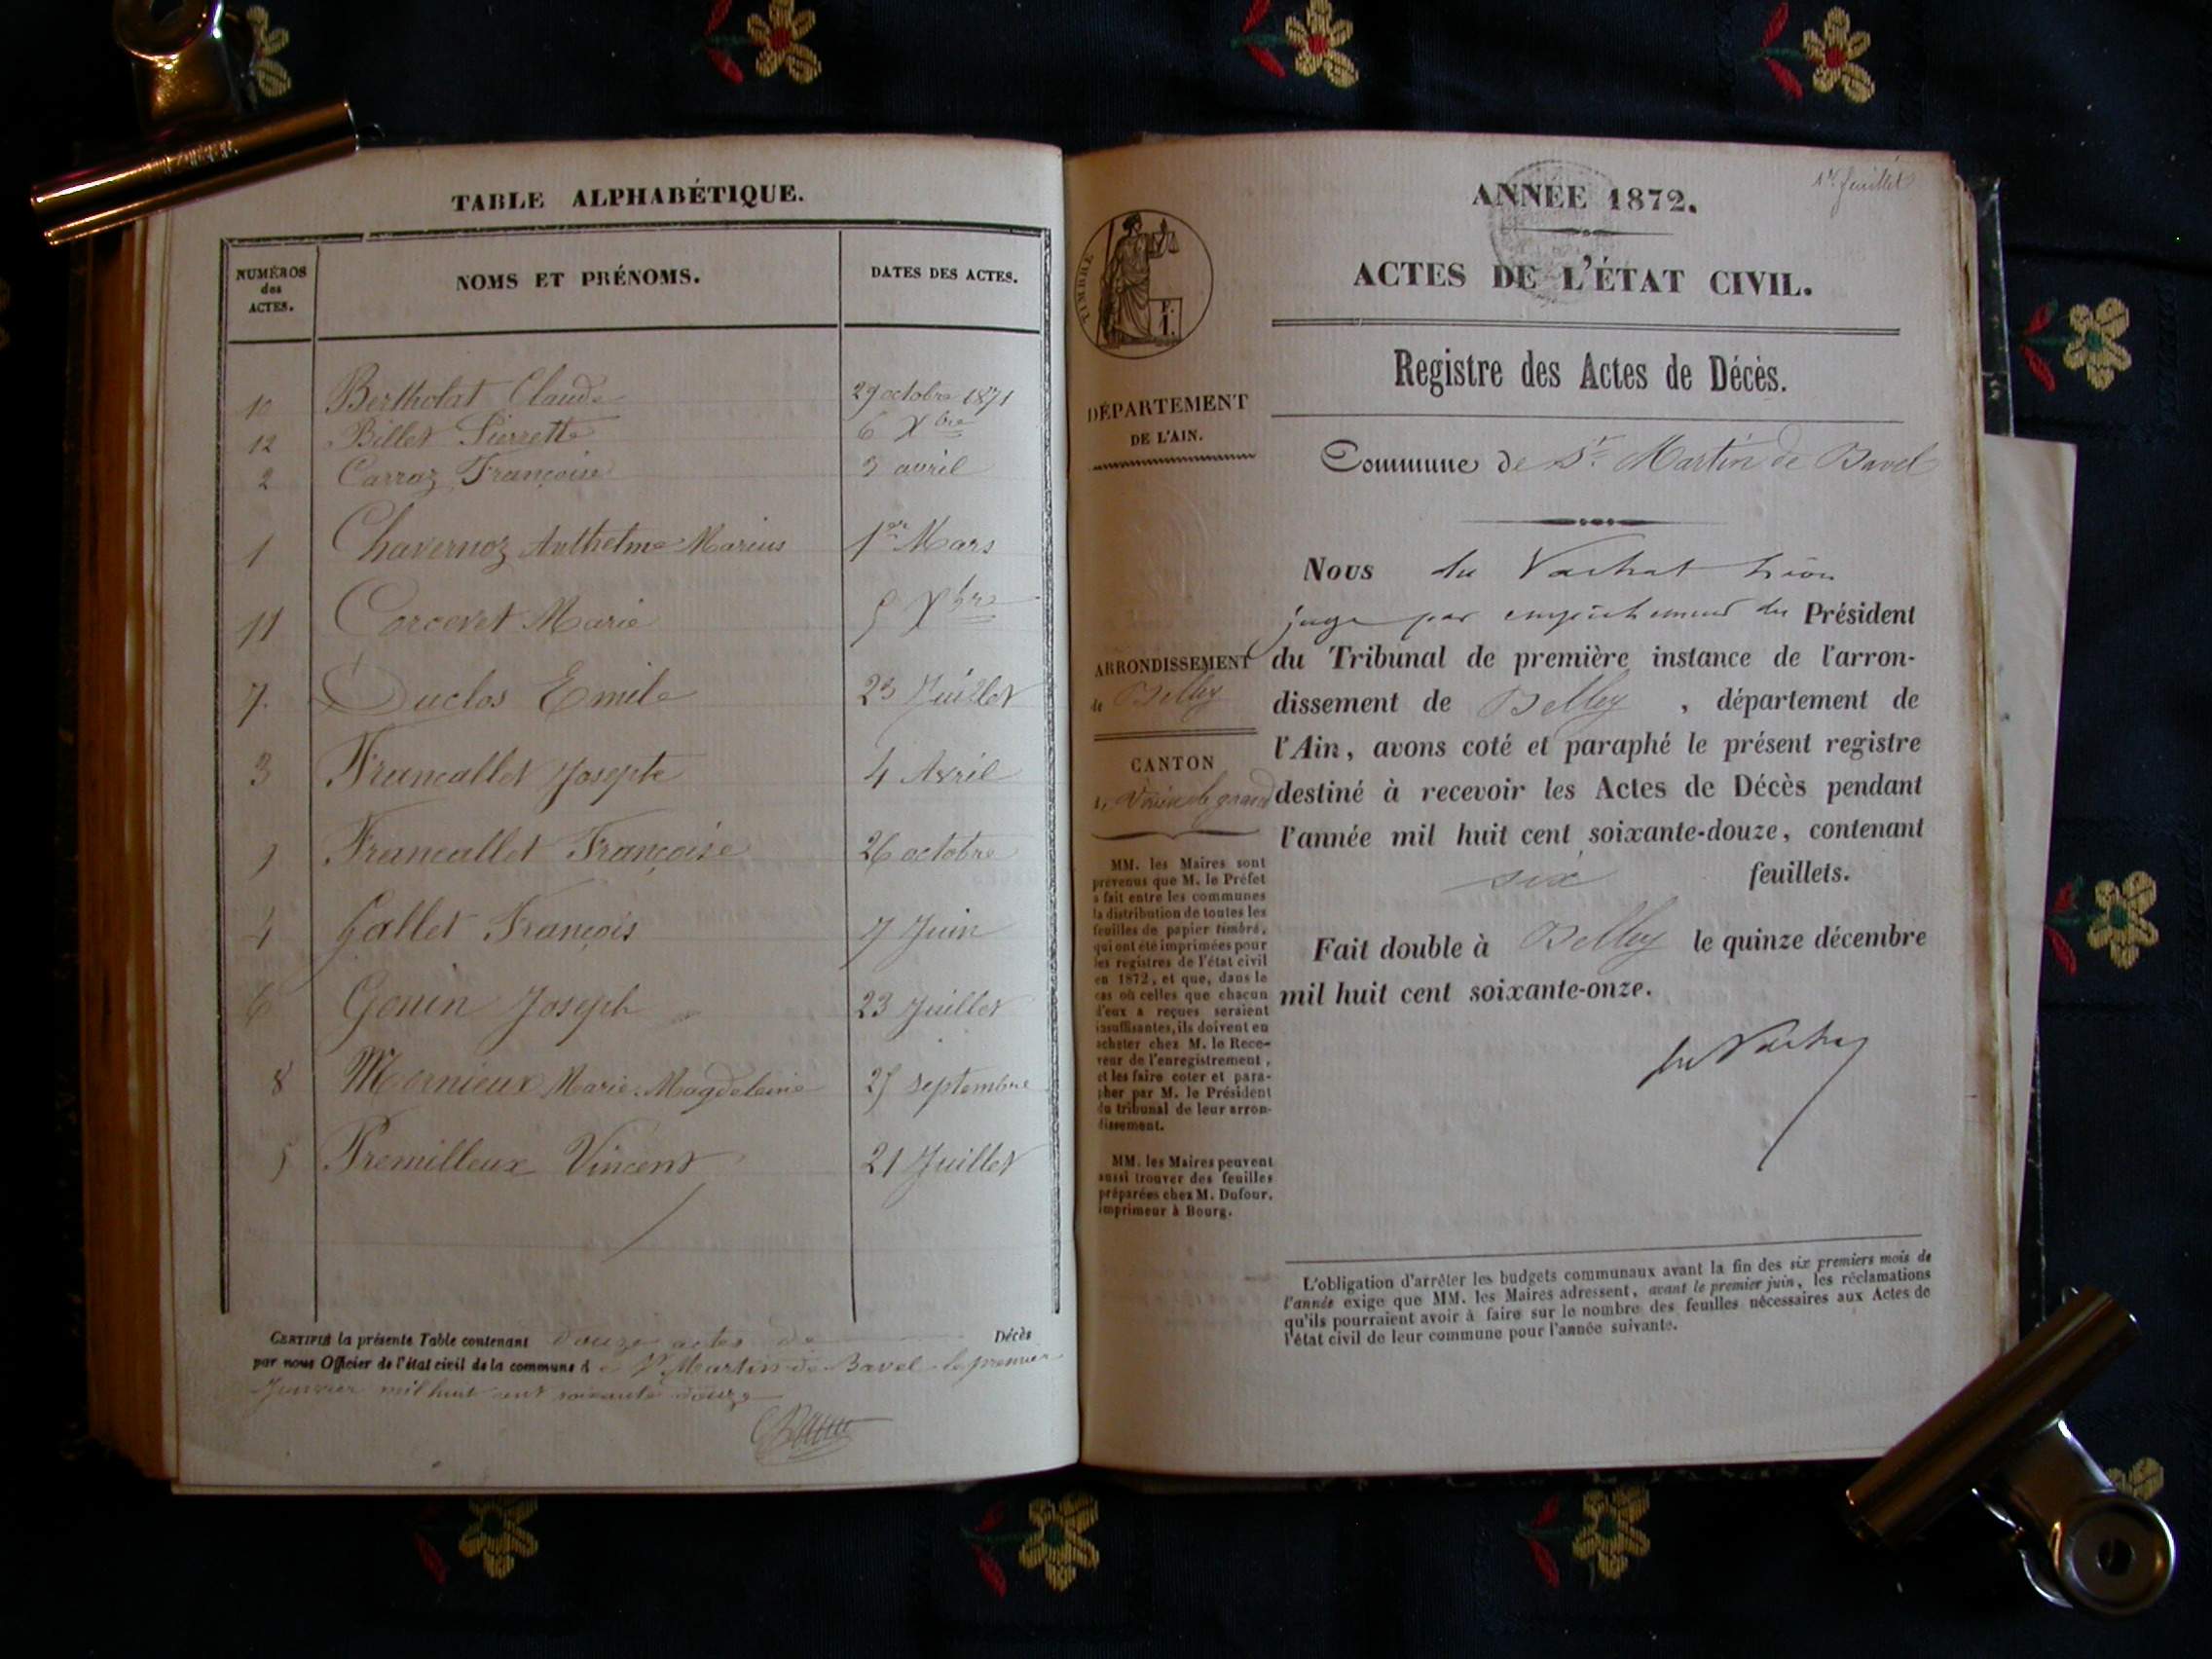 TABLE ALPHABÉTIQUE.
NUMÉROS des ACTES.
NOMS ET PRÉNOMS.
DATES DES ACTES.
10 Bertholat Claude 29 octobre 1871
12 Billet Pierrette 6 Xbre
2 Carraz Françoise 3 avril
1 Chavernoz Anthelme Marius 1er Mars
11 Corcevet Marie 5 Xbre
7. Duclos Emile 23 Juillet
3 Francallet Josephte 4 Avril
9 Francallet Françoise 26 octobre
4 Gallet François 7 Juin
6 Genin Joseph 23 Juillet
8 Mornieux Marie-Magdeleine 25 septembre
5 Premilleux Vincent 21 Juillet
CERTIFIÉ la présente Table contenant douze actes de Décès
par nous Officier de l'état civil de la commune de St Martin de Bavel le premier
Janvier mil huit cent soixante douze
1er feuillet
ANNÉE 1872.
ACTES DE L'ÉTAT CIVIL.
Registre des Actes de Décès.
TIMBRE
1.
F.
DÉPARTEMENT
DE L'AIN.
Commune de St Martin de Bavel
Nous du Vachat Léon
juge par empêchement du Président
du Tribunal de première instance de l'arron-
dissement de Belley, département de
l'Ain, avons coté et paraphé le présent registre
destiné à recevoir les Actes de Décès pendant
l'année mil huit cent soixante-douze, contenant
six feuillets.
Fait double à Belley le quinze décembre
mil huit cent soixante-onze.
du Vachat
ARRONDISSEMENT
de Belley
CANTON
de Virieu le grand
MM. les Maires sont
prévenus que M. le Préfet
a fait entre les communes
la distribution de toutes les
feuilles de papier timbré,
qui ont été imprimées pour
les registres de l'état civil
en 1872, et que, dans le
cas où celles que chacun
d'eux a reçues seraient
insuffisantes, ils doivent en
acheter chez M. le Rece-
veur de l'enregistrement,
et les faire coter et para-
pher par M. le Président
du tribunal de leur arron-
dissement.
MM. les Maires peuvent
aussi trouver des feuilles
préparées chez M. Dufour,
imprimeur à Bourg.
L'obligation d'arrêter les budgets communaux avant la fin des six premiers mois de
l'année exige que MM. les Maires adressent, avant le premier juin, les réclamations
qu'ils pourraient avoir à faire sur le nombre des feuilles nécessaires aux Actes de
l'état civil de leur commune pour l'année suivante.